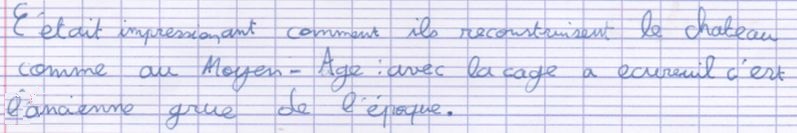 C'était impressionant comment ils reconstruisent le chateau
comme au Moyen-Âge : avec la cage a ecureuil c'est
l'ancienne grue de l'époque.